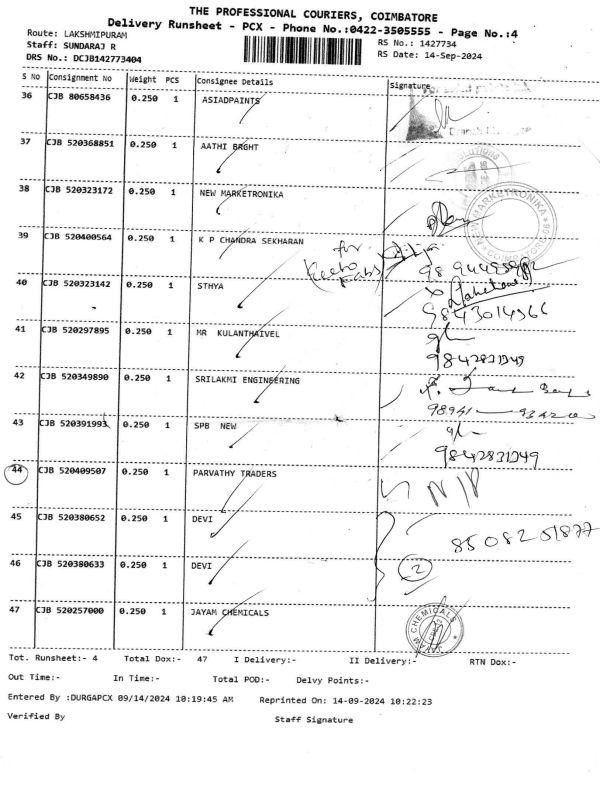 THE PROFESSIONAL COURIERS, COIMBATORE
Delivery Runsheet - PCX - Phone No.:0422-3505555 - Page No.:4
Route: LAKSHMIPURAM
Staff: SUNDARAJ R
DRS No.: DCJB142773404
RS No.: 1427734
RS Date: 14-Sep-2024
S No Consignment No Weight PCS Consignee Details Signature
36 CJB 80658436 0.250 1 ASIADPAINTS
37 CJB 520368851 0.250 1 AATHI BRGHT
38 CJB 520323172 0.250 1 NEW MARKETRONIKA
MARKETRONIKA
39 CJB 520400564 0.250 1 K P CHANDRA SEKHARAN
for
40 CJB 520323142 0.250 1 STHYA
9843014966
41 CJB 520297895 0.250 1 MR KULANTHAIVEL
9842831249
42 CJB 520349890 0.250 1 SRILAKMI ENGINEERING
43 CJB 520391993 0.250 1 SPB NEW
9842831249
44 CJB 520409507 0.250 1 PARVATHY TRADERS
45 CJB 520380652 0.250 1 DEVI
8508251877
46 CJB 520380633 0.250 1 DEVI
2
47 CJB 520257000 0.250 1 JAYAM CHEMICALS
JAYAM CHEMICALS
Tot. Runsheet:- 4 Total Dox:- 47 I Delivery:- II Delivery:- RTN Dox:-
Out Time:- In Time:- Total POD:- Delvy Points:-
Entered By :DURGAPCX 09/14/2024 10:19:45 AM Reprinted On: 14-09-2024 10:22:23
Verified By Staff Signature